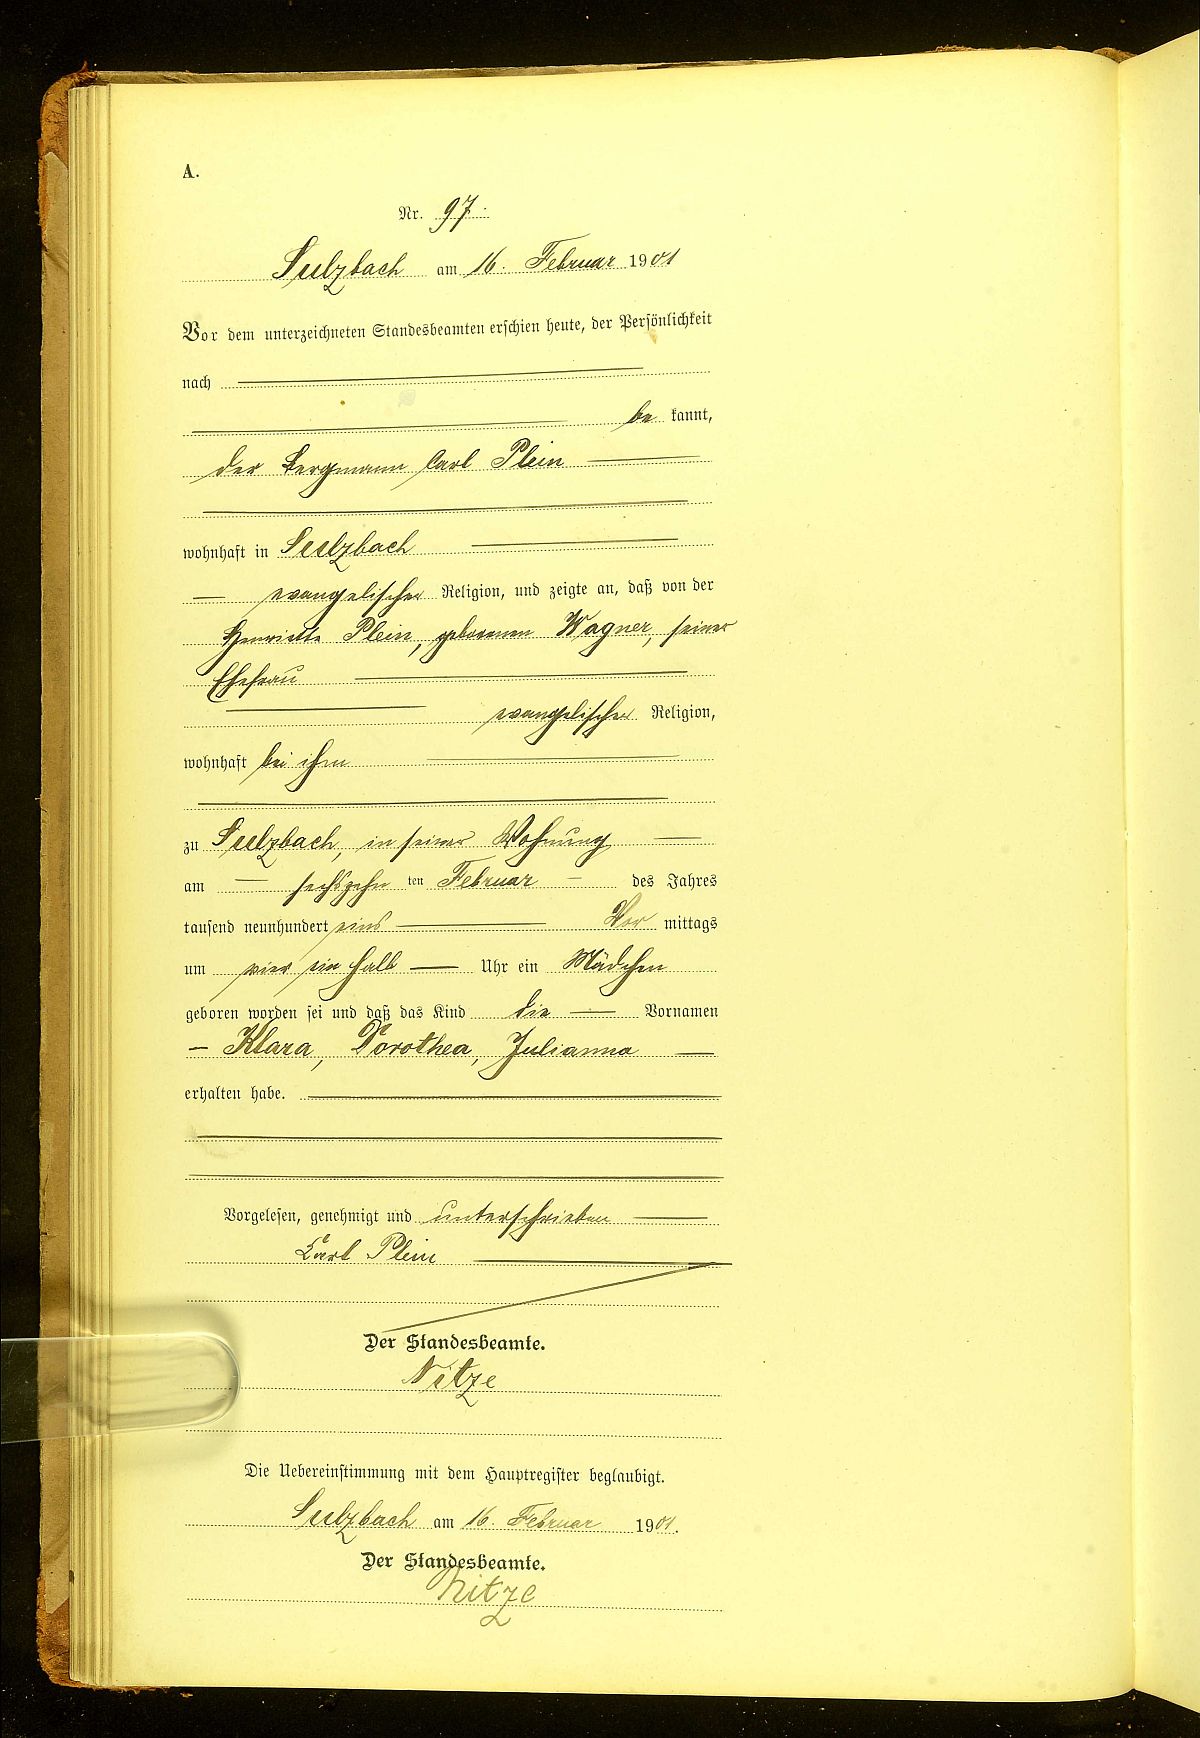 A.
Nr. 97.
Sulzbach am 16. Februar 1901
Vor dem unterzeichneten Standesbeamten erschien heute, der Persönlichkeit
nach
be kannt,
der Bergmann Carl Plein
wohnhaft in Sulzbach
evangelischer Religion, und zeigte an, daß von der
Henriette Plein, geborenen Wagner, seiner
Ehefrau
evangelischer Religion,
wohnhaft bei ihm
zu Sulzbach, in seiner Wohnung
am sechszehn ten Februar des Jahres
tausend neunhundert eins Vor mittags
um vier ein halb Uhr ein Mädchen
geboren worden sei und daß das Kind die Vornamen
Klara, Dorothea, Julianna
erhalten habe.
Vorgelesen, genehmigt und unterschrieben
Carl Plein
Der Standesbeamte.
Nitze
Die Uebereinstimmung mit dem Hauptregister beglaubigt.
Sulzbach am 16. Februar 1901.
Der Standesbeamte.
Nitze